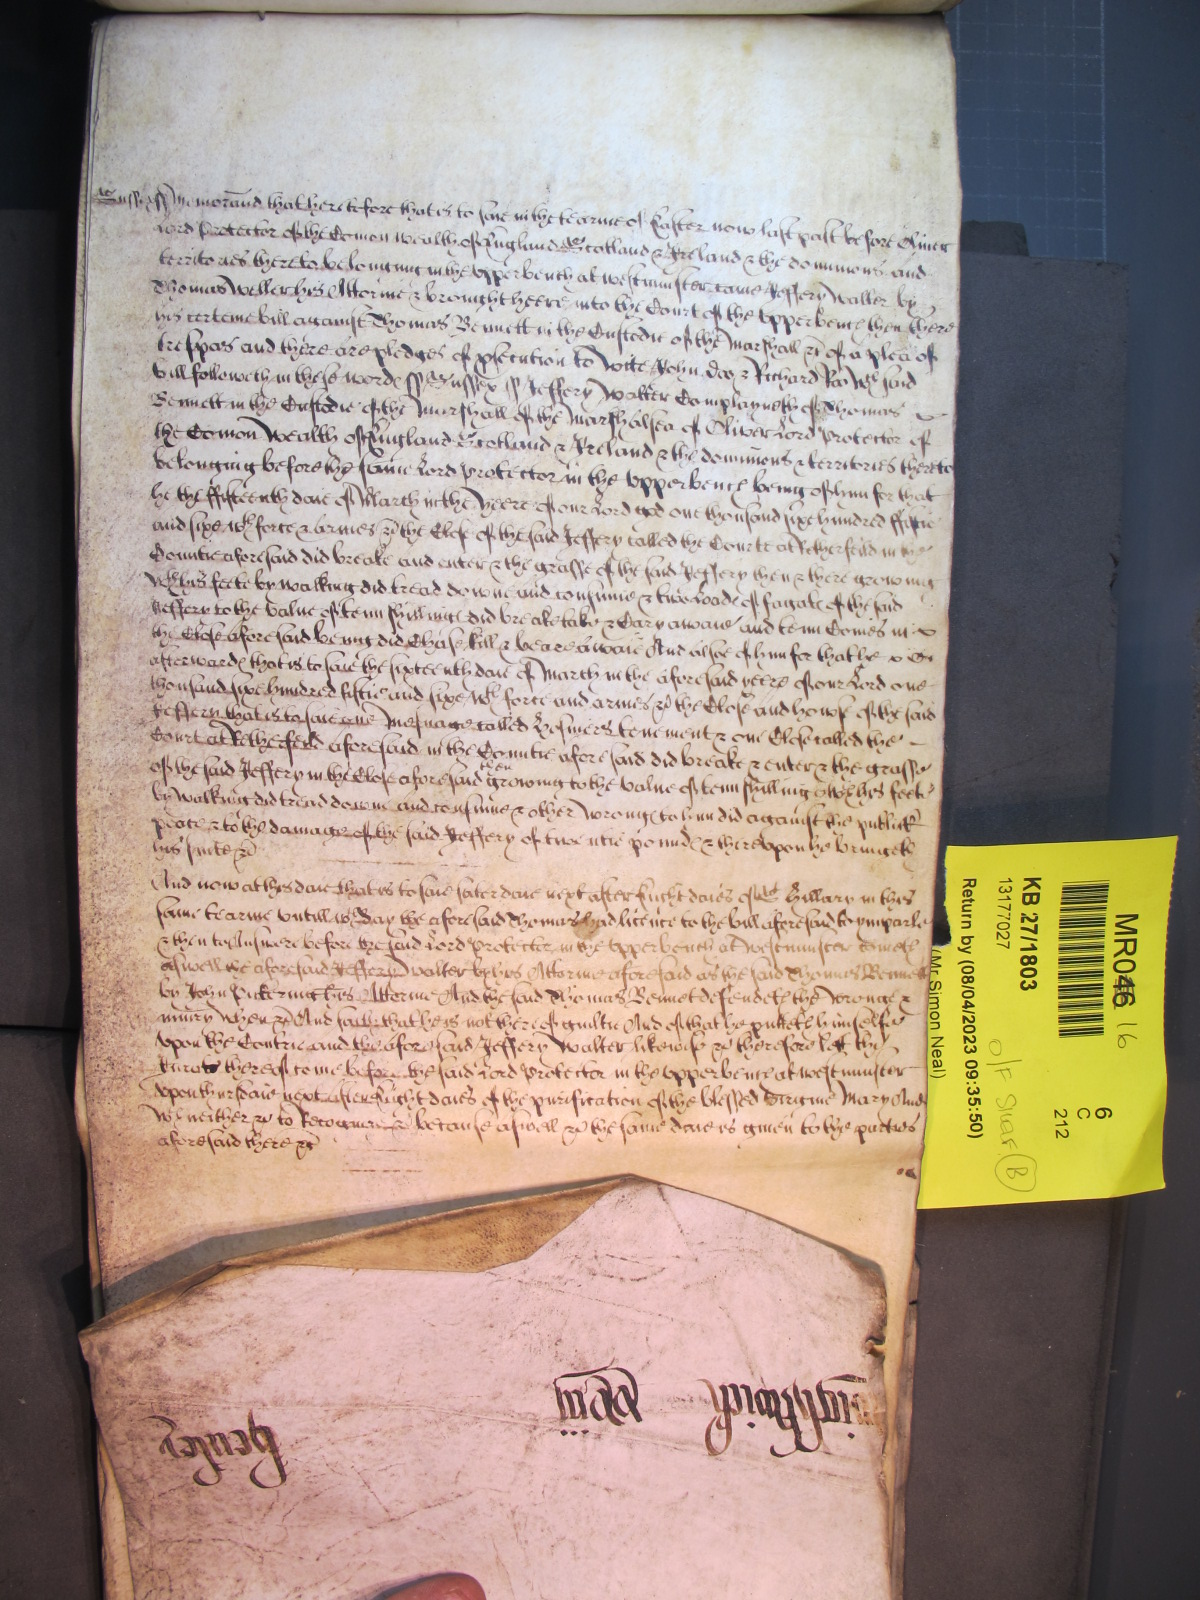 Sussex ss Memorand that heretofore that is to saie in the tearme of Easter now last past before Oliver
Lord Protector of the Comon wealth of England Scotland & Ireland & the dominions and
territories thereto belonging in the upper bench at westminster came Jeffery Walter by
Thomas Weller his Attornie & brought heere into the Court of the upper bench then there
his certeine bill against Thomas Bennett in the Custodie of the Marshall &c of a plea of
trespas and there are pledges of psecution to wite John Doo & Richard Roo wch said
bill followeth in theis words ss Sussex ss Jeffery Walter Complayneth of Thomas
Bennett in the Custodie of the Marshall of the Marshalsea of Oliver Lord Protector of
the Comon Wealth of England Scotland & Ireland & the dominions & territories thereto
belonging before the same Lord Protector in the upper bench being of him for that
he the fifteenth daie of March in the yeere of our Lord god one thousand sixe hundred fiftie
and sixe wth force & armes &c the Close of the said Jeffery called the Courte at Netherfeild in the
Countie aforesaid did breake and enter & the grasse of the said Jeffery then & there growing
wth his feete by walking did tread downe and consume & two loades of fagats of the said
Jeffery to the value of tenn shillings did breake take & Cary awaie and tenn Conies in
the Close aforesaid being did Chase kill & beare awaie And alsoe of him for that he
afterwards that is to saie the sixteenth daie of March in the aforesaid yeere of our Lord one
thousand sixe hundred fiftie and sixe wth force and armes &c the Close and howse of the said
Jeffery that is to saie one Mesuage called tenement & one Close called the
Court at Netherfeild aforesaid in the Countie aforesaid did breake & enter & the grasse
of the said Jeffery in the Close aforesaid then growing to the value of tenn shillings wth his feete
by walking did tread downe and consume & other wrongs to him did against the publick
peace & to the damage of the said Jeffery of twentie pounds & thereupon he bringeth
his suite &c
And now at this daie that is to saie saterdaie next after Eight daies of St Hillary in this
same tearme untill wch Day the aforesaid Thomas had licence to the bill aforesaid to imparle
& then to Answere before the said Lord Protector in the upper bench at westminster Cometh
aswell the aforesaid Jeffery Walter by his Attornie aforesaid as the said Thomas Bennett
by John Pickering his Attornie And the said Thomas Bennet defendeth the wronge &
iniury when &c And saith that he is not thereof guiltie And of that he putteth himselfe
upon the Contrie and the aforesaid Jeffery Walter likewise &c therefore lett the
Jurats thereof come before the said Lord Protector in the upper bench at westminster
upon thursdaie next after Eight daies of the purification of the blessed Virgine Mary And
who neither &c to Recognize &c because aswell &c the same daie is given to the parties
aforesaid there &c
MR046 16
KB 27/1803
13177027
Return by (08/04/2023 09:35:50)
(Mr Simon Neal)
6
C
212
O/F Shar B